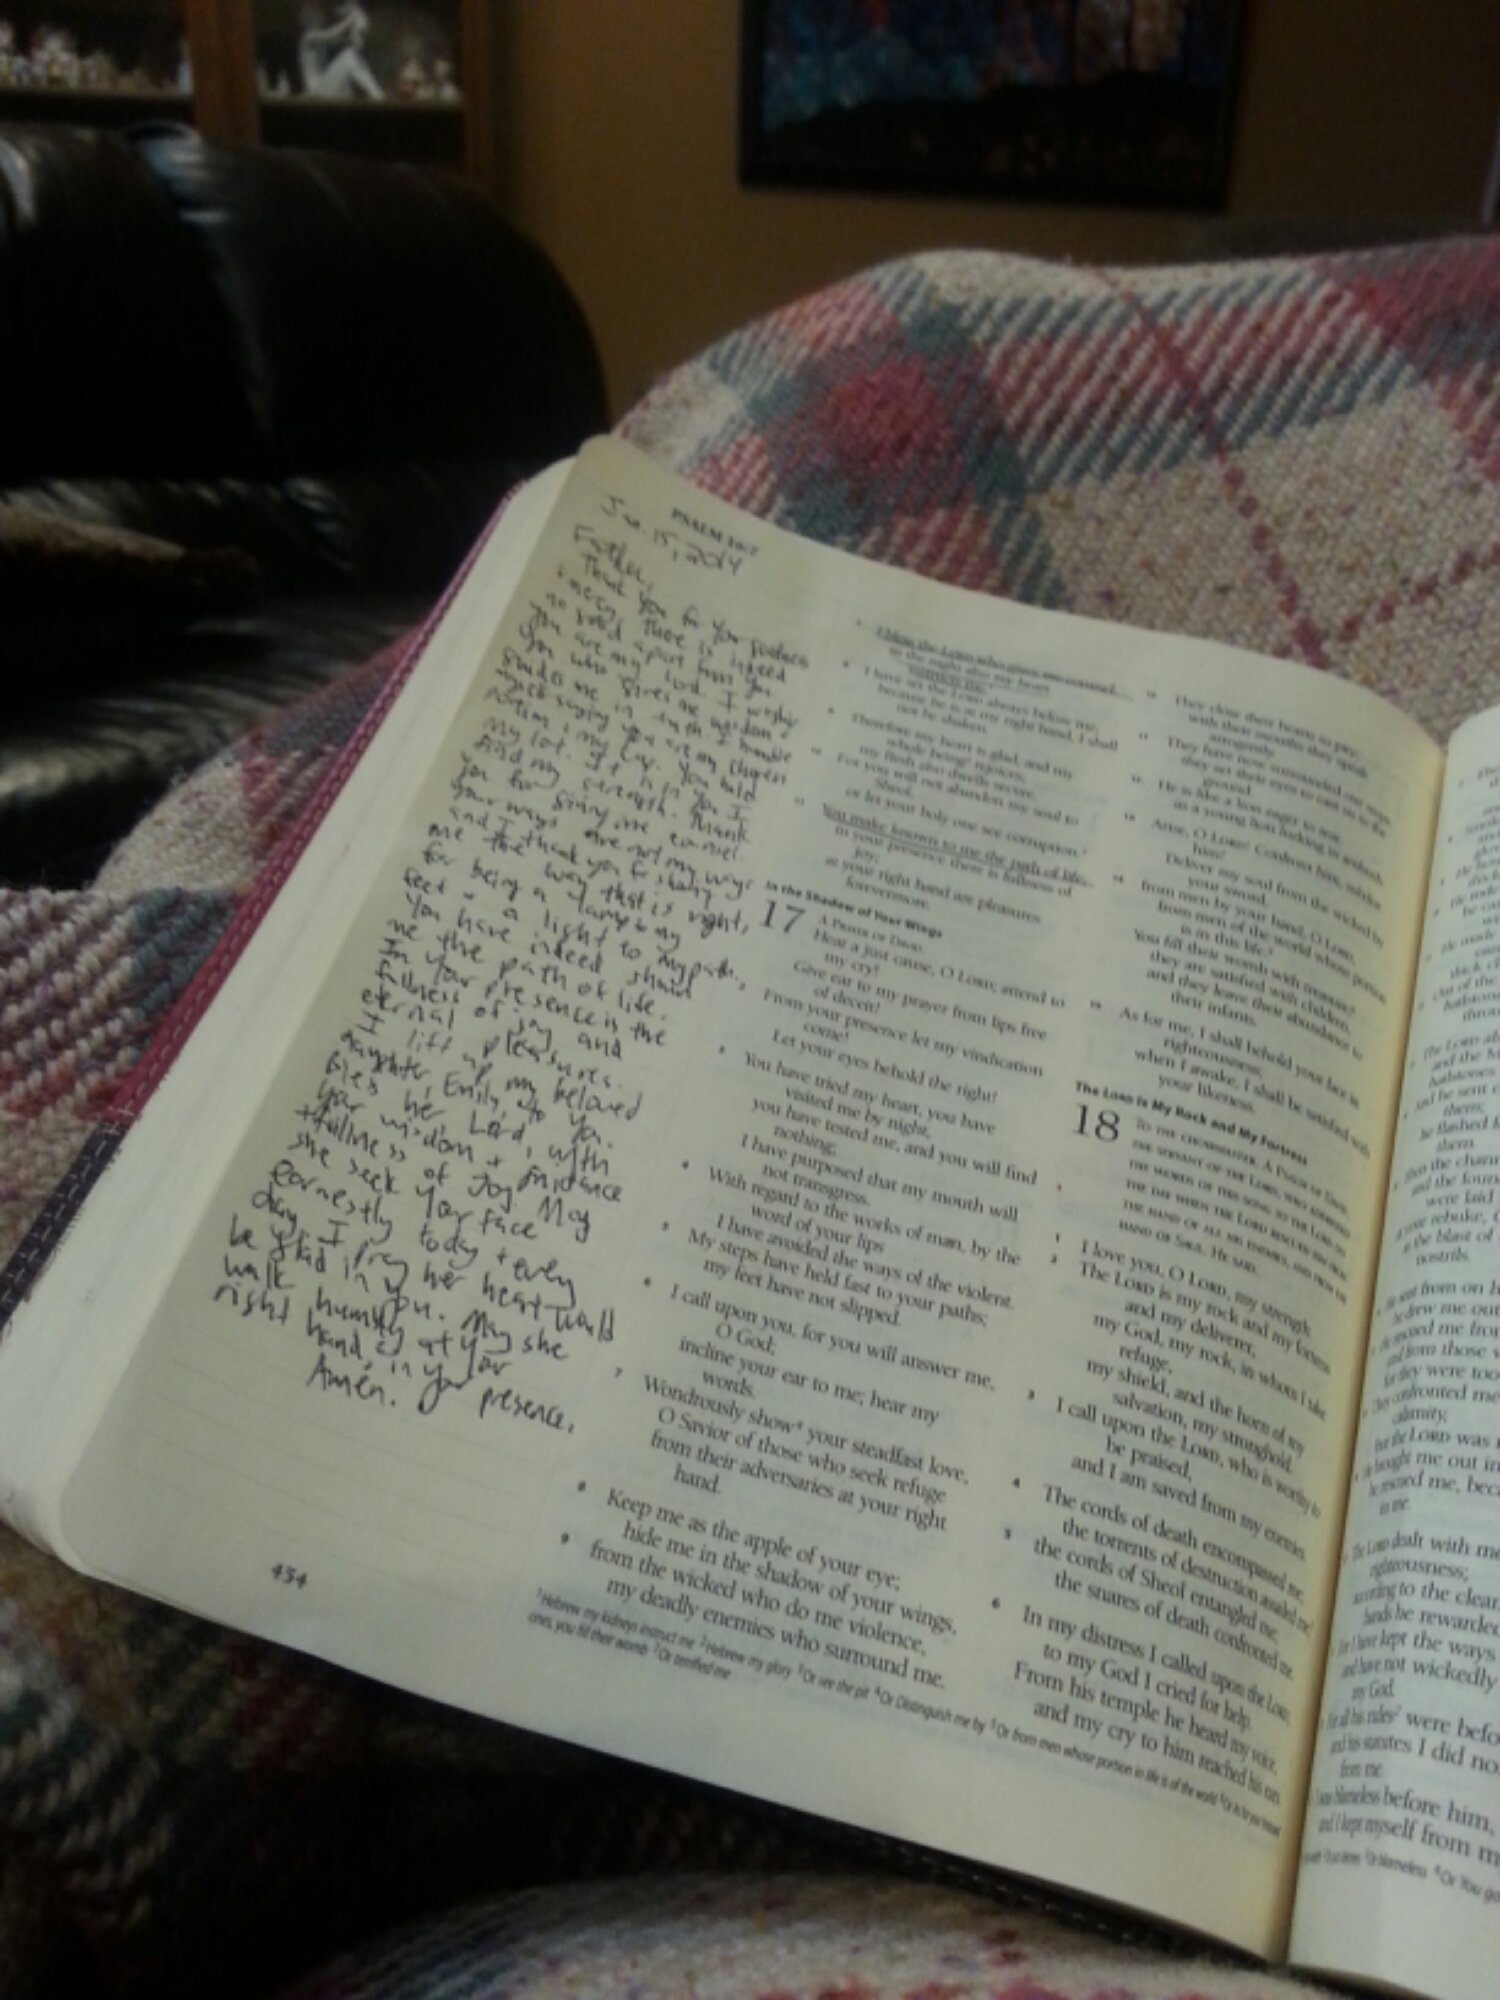 PSALM 16:7
Jan. 15, 2014
Father,
Thank you for your goodness
+ mercy. There is indeed
no good apart from you.
You are my Lord. I worship
you who gives me wisdom +
guides me in truth. I humble
myself saying you are my chosen
portion + my cup. You hold
my lot. It is in you I
find my strength. Thank
you for giving me counsel.
Your ways are not my ways
and I thank you for showing
me the way that is right,
for being a lamp to my
feet + a light to my path.
You have indeed shown
me the path of life.
In your presence is the
fullness of joy and
eternal pleasures.
I lift up my beloved
daughter, Emily, to you.
Bless her, Lord, with
your wisdom + guidance
+ fullness of joy. May
she seek your face
earnestly today + every
day. I pray her heart would
be glad in you. May she
walk humbly at your
right hand + in your
presence.
Amen.
454
I bless the LORD who gives me counsel;
in the night also my heart
instructs me.
8 I have set the LORD always before me;
because he is at my right hand, I shall
not be shaken.
9 Therefore my heart is glad, and my
whole being rejoices;
my flesh also dwells secure.
10 For you will not abandon my soul to
Sheol,
or let your holy one see corruption.
11 You make known to me the path of life;
in your presence there is fullness of
joy;
at your right hand are pleasures
forevermore.
In the Shadow of Your Wings
17 A PRAYER OF DAVID.
Hear a just cause, O LORD; attend to
my cry!
Give ear to my prayer from lips free
of deceit!
From your presence let my vindication
come!
Let your eyes behold the right!
3 You have tried my heart, you have
visited me by night,
you have tested me, and you will find
nothing;
I have purposed that my mouth will
not transgress.
4 With regard to the works of man, by the
word of your lips
I have avoided the ways of the violent.
5 My steps have held fast to your paths;
my feet have not slipped.
6 I call upon you, for you will answer me,
O God;
incline your ear to me; hear my
words.
7 Wondrously show⁴ your steadfast love,
O Savior of those who seek refuge
from their adversaries at your right
hand.
8 Keep me as the apple of your eye;
hide me in the shadow of your wings,
9 from the wicked who do me violence,
my deadly enemies who surround me.
10 They close their hearts to pity;
with their mouths they speak
arrogantly.
11 They have now surrounded our steps;
they set their eyes to cast us to the
ground.
12 He is like a lion eager to tear,
as a young lion lurking in ambush.
13 Arise, O LORD! Confront him, subdue
him!
Deliver my soul from the wicked by
your sword,
14 from men by your hand, O LORD,
from men of the world whose portion
is in this life.
You fill their womb with treasure;
they are satisfied with children,
and they leave their abundance to
their infants.
15 As for me, I shall behold your face in
righteousness;
when I awake, I shall be satisfied with
your likeness.
The LORD Is My Rock and My Fortress
18 TO THE CHOIRMASTER. A PSALM OF DAVID,
THE SERVANT OF THE LORD, WHO ADDRESSED
THE WORDS OF THIS SONG TO THE LORD ON
THE DAY WHEN THE LORD RESCUED HIM FROM
THE HAND OF ALL HIS ENEMIES, AND FROM THE
HAND OF SAUL. HE SAID:
1 I love you, O LORD, my strength.
2 The LORD is my rock and my fortress
and my deliverer,
my God, my rock, in whom I take
refuge,
my shield, and the horn of my
salvation, my stronghold.
3 I call upon the LORD, who is worthy to
be praised,
and I am saved from my enemies.
4 The cords of death encompassed me;
the torrents of destruction assailed me;
5 the cords of Sheol entangled me;
the snares of death confronted me.
6 In my distress I called upon the LORD;
to my God I cried for help.
From his temple he heard my voice,
and my cry to him reached his ears.
¹Hebrew my kidneys instruct me ²Hebrew my glory ³Or see the pit ⁴Or Distinguish me by ⁵Or from men whose portion in life is of the world
ones, you fill their womb ⁷Or terrified me
The LORD
and the M
hailstones
And he sent
them;
he flashed f
them.
Then the chann
and the foun
were laid
at your rebuke, O
at the blast of
nostrils.
He sent from on h
he drew me out
He rescued me from
and from those w
for they were too
They confronted me
calamity,
but the LORD was m
He brought me out in
he rescued me, beca
in me.
The LORD dealt with me
righteousness;
according to the clean
hands he rewarded
For I have kept the ways
and have not wickedly
my God.
For all his rules² were befo
and his statutes I did no
from me.
I was blameless before him,
and I kept myself from m